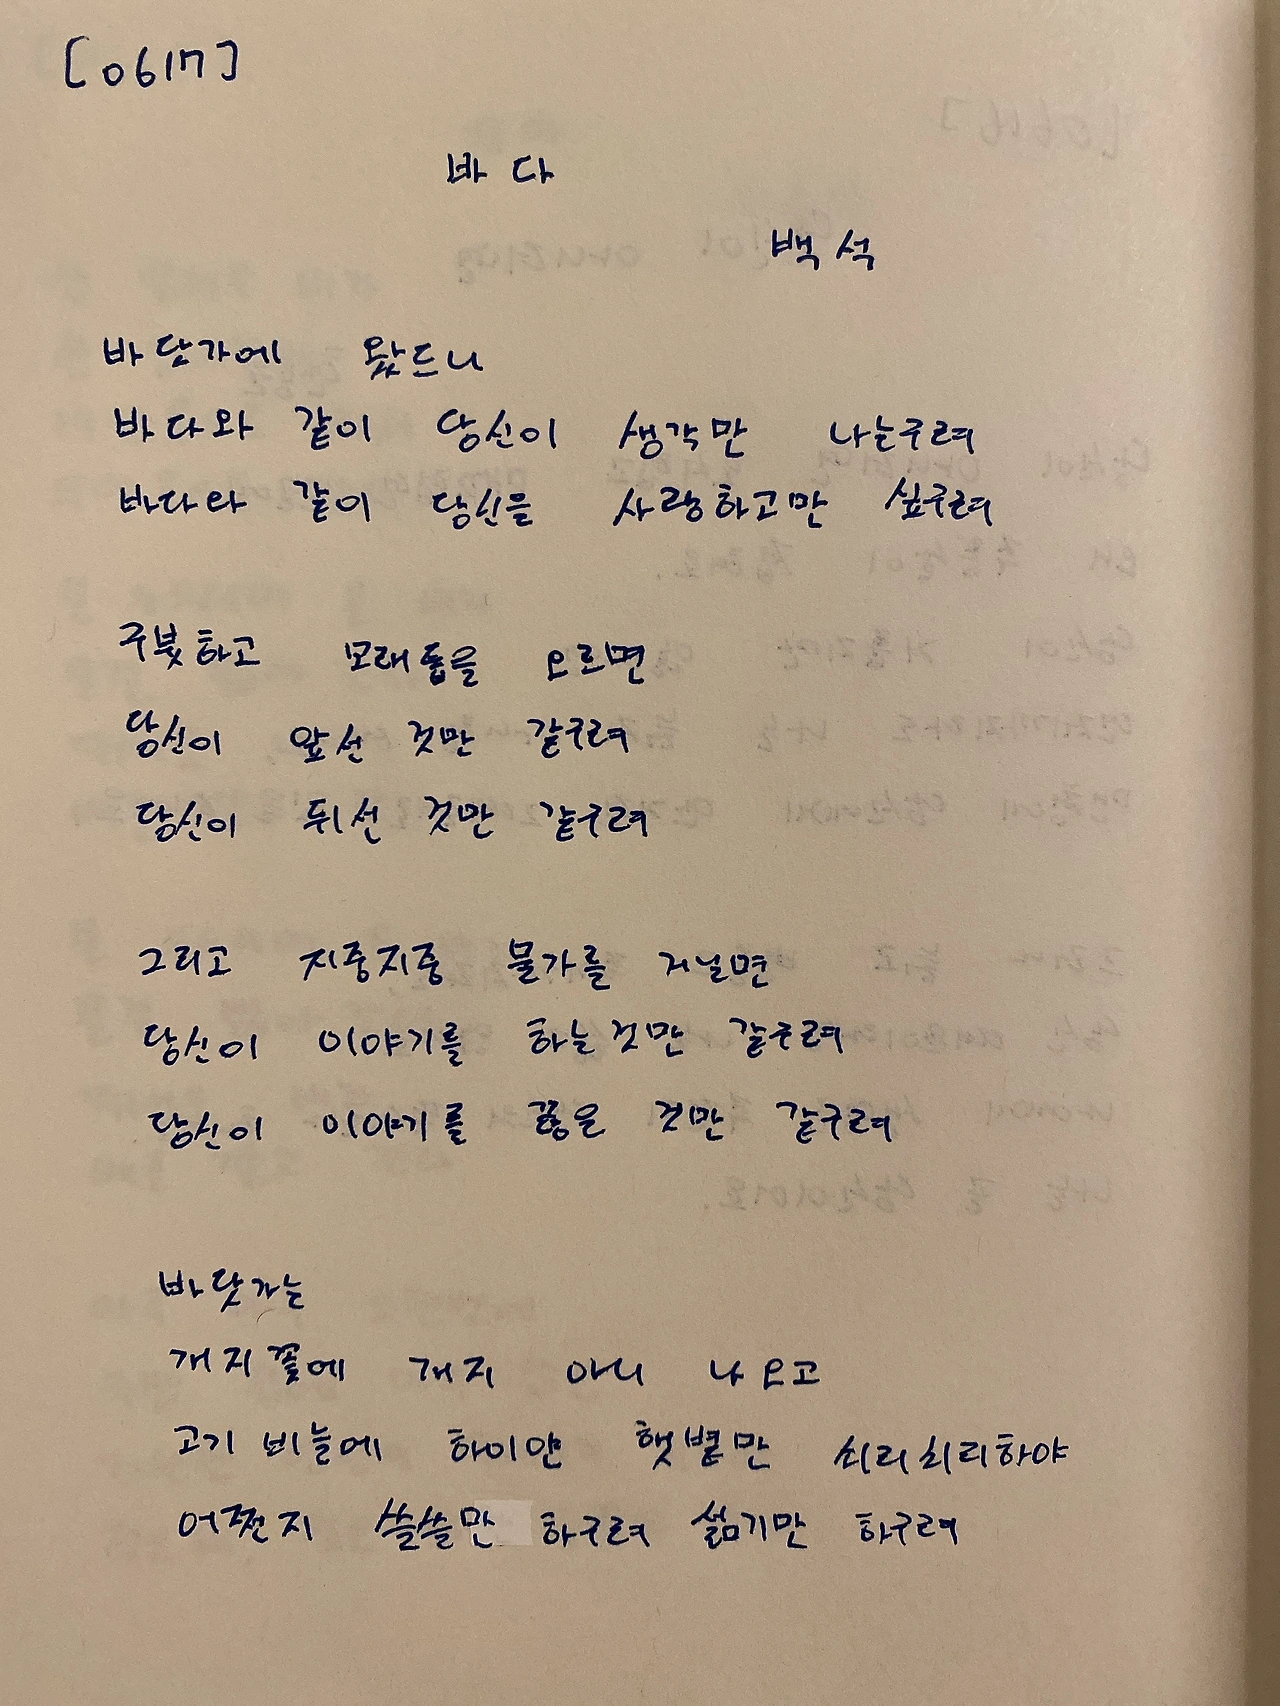 [0617]
바다
백석
바닷가에 왔드니
바다와 같이 당신이 생각만 나는구려
바다와 같이 당신을 사랑하고만 싶구려
구붓하고 모래톱을 오르면
당신이 앞선 것만 같구려
당신이 뒤선 것만 같구려
그리고 지중지중 물가를 거닐면
당신이 이야기를 하는것만 같구려
당신이 이야기를 끊은 것만 같구려
바닷가는
개지꽃에 개지 아니 나오고
고기비늘에 하이얀 햇볕만 쇠리쇠리하야
어쩐지 쓸쓸만 하구려 섦기만 하구려